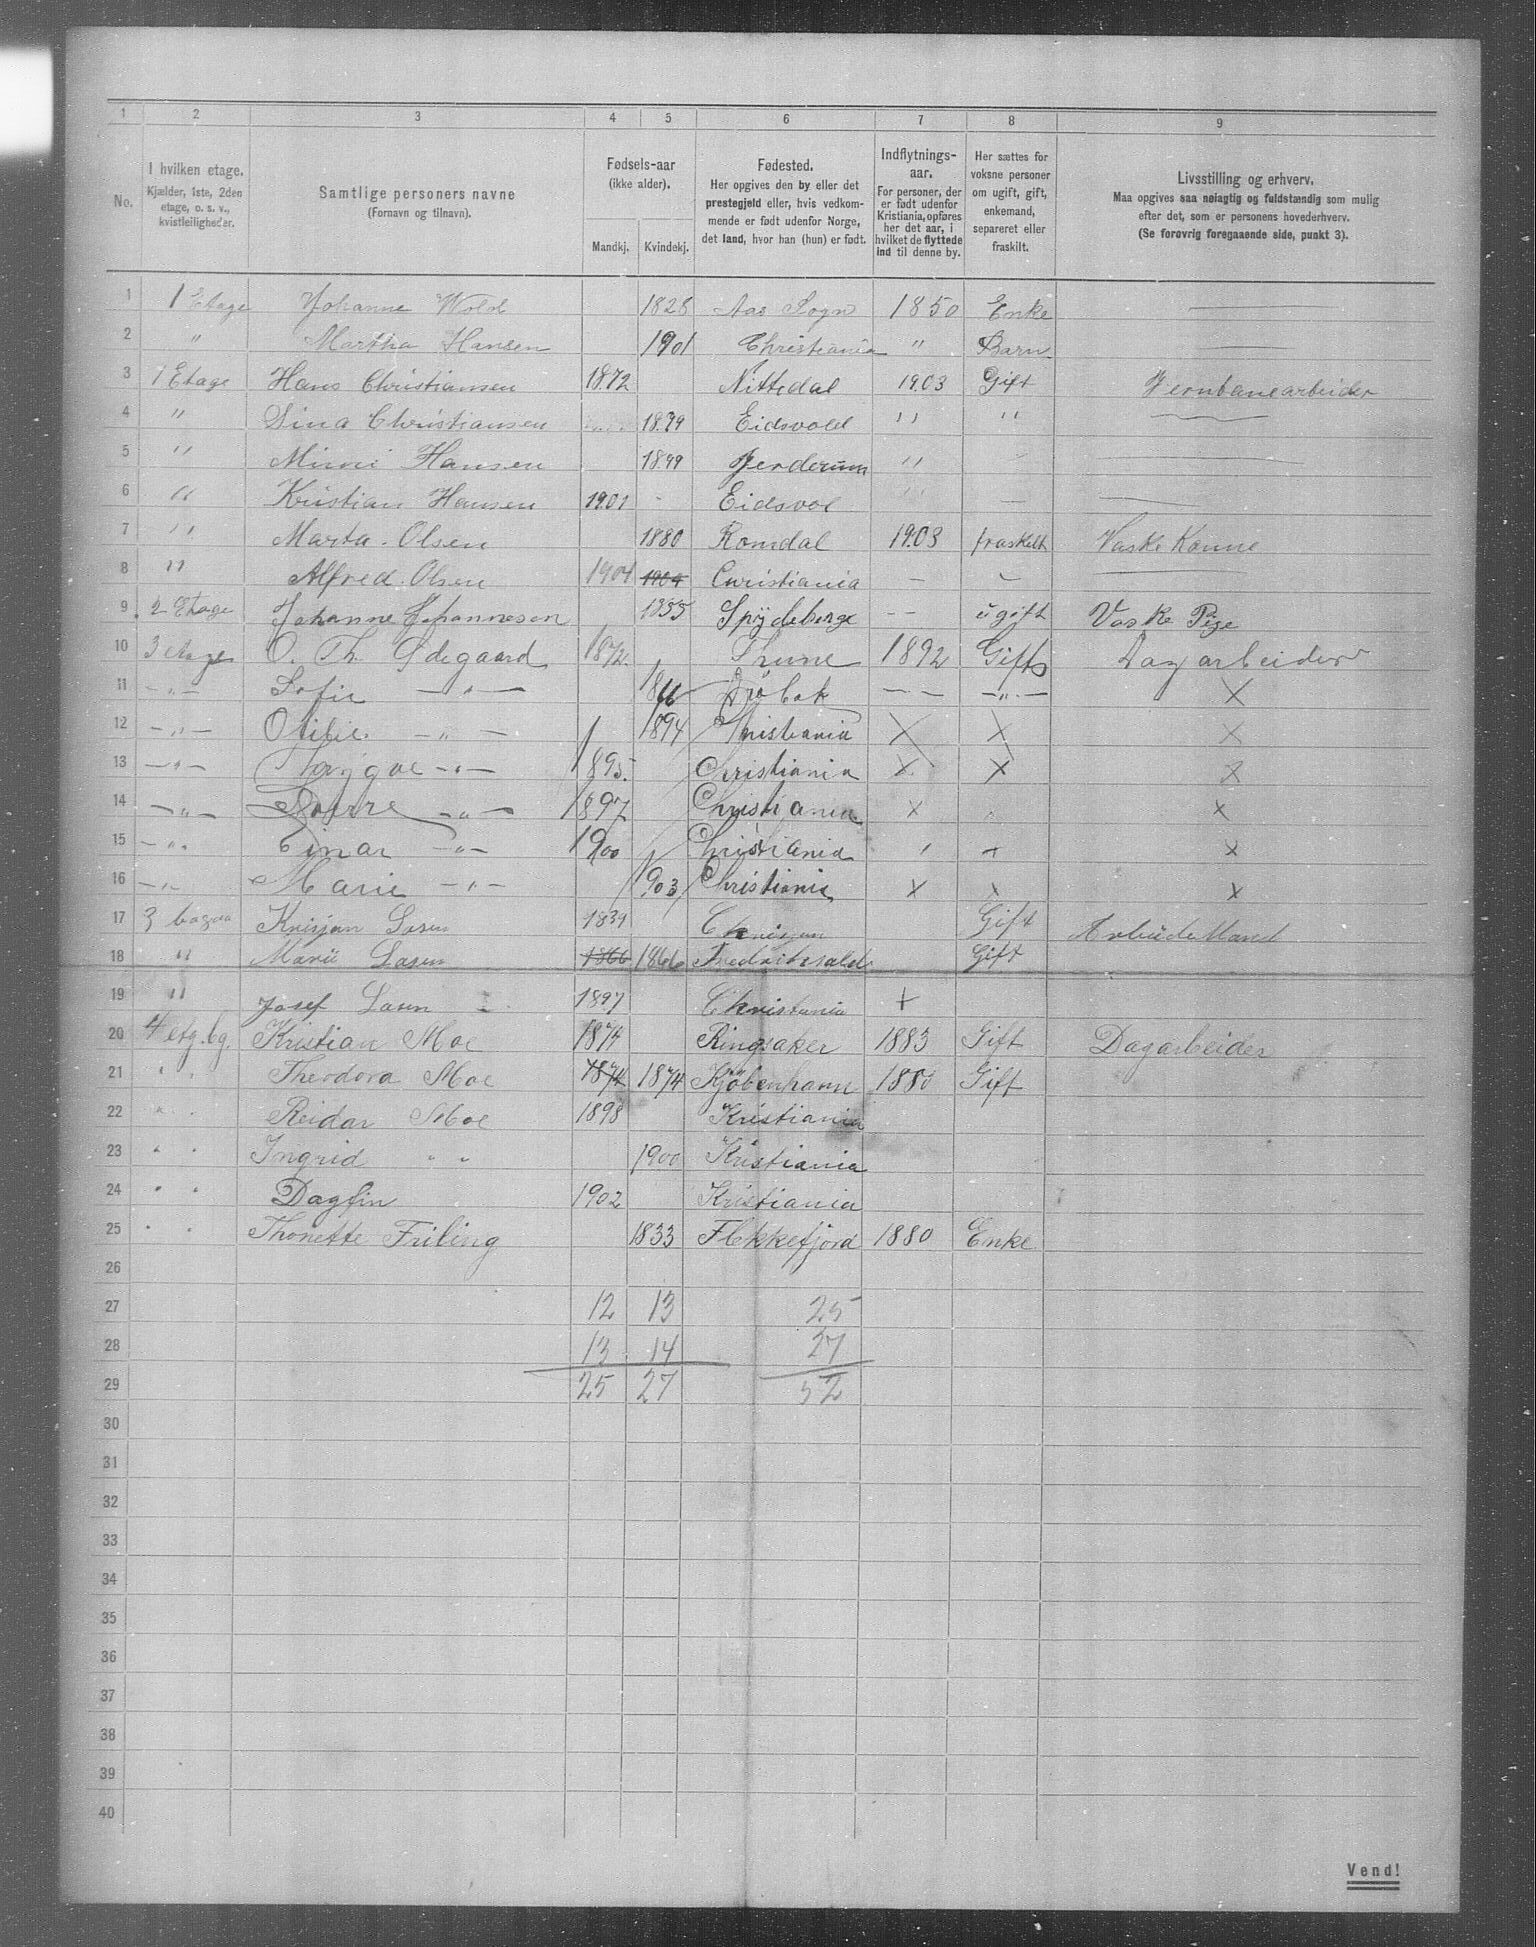 1 2 3 4 5 6 7 8 9
No. I hvilken etage. Kjælder, 1ste, 2den etage, o. s. v., kvistleiligheder. Samtlige personers navne (Fornavn og tilnavn). Fødsels-aar (ikke alder). Mandkj. Kvindekj. Fødested. Her opgives den by eller det prestegjeld eller, hvis vedkommende er født udenfor Norge, det land, hvor han (hun) er født. Indflytnings-aar. For personer, der er født udenfor Kristiania, opføres her det aar, i hvilket de flyttede ind til denne by. Her sættes for voksne personer om ugift, gift, enkemand, separeret eller fraskilt. Livsstilling og erhverv. Maa opgives saa nøiagtig og fuldstændig som mulig efter det, som er personens hovederhverv. (Se forøvrig foregaaende side, punkt 3).
1 1 Etage Johanne Wold 1828 Aas Sogn 1850 Enke —
2 " Martha Hansen 1901 Christiania " Barn —
3 1 Etage Hans Christiansen 1872 Nittedal 1903 Gift Jernbanearbeider
4 " Sina Christiansen Eidsvold " " —
5 " Mimi Hansen 1899 Jerderum " - —
6 " Kristian Hansen 1901 - Eidsvol " — —
7 " Marta Olsen 1880 Romdal 1903 fraskelt Vaske Konne
8 " Alfred Olsen 1904 1904 Christiania — - —
9 2 Etage Johanne Johannesen 1855 Spydeberge -- ugift Vaske Pige
10 3 etage O. Th. Ødegaard 1872. 1892 Gift Dagarbeider
11 —"— Sofie —"— 1866 Drøbak —"— —"— X
12 —"— Otilie —"— 1894 Christiania X X X
13 —"— Trygve —"— 1895. Christiania X X X
14 —"— Sverre —"— 1897 Christiania X " X
15 —"— Einar —"— 1900 Christiania ' + X
16 —"— Marie —"— 1903 Christiania X X X
17 3 Knisjan Lasen 1839 Gift Arbeide Mand
18 " Marie Lasen 1866 1866 Fredrikshald Gift
19 " Josef Lasen 1897 Christiania +
20 4 etg. bg. Kristian Moe 1874 Ringsaker 1883 Gift Dagarbeider
21 " " Theodora Moe 1874 1874 Kjöbenhamn 1880 Gift
22 " " Reidar Moe 1898 Kristiania
23 " " Ingrid " " 1900 Kristiania
24 " " Dagfin 1902 Kristiania
25 " " Thonette Friling 1833 Flekkefjord 1880 Enke
26
27 12 13 25
28 13 14 27
29 25 27 52
30
31
32
33
34
35
36
37
38
39
40
Vend!